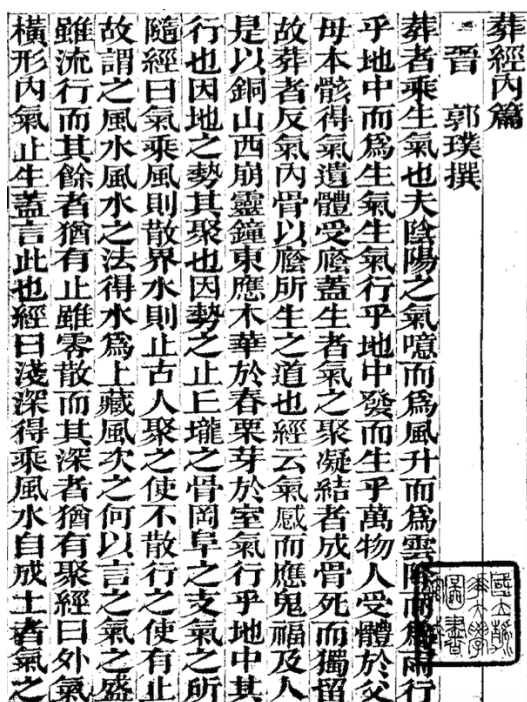 葬經內篇
晉 郭璞撰
葬者乘生氣也夫陰陽之氣噫而爲風升而爲雲降而爲雨行
乎地中而爲生氣生氣行乎地中發而生乎萬物人受體於父
母本骸得氣遺體受廕蓋生者氣之聚凝結者成骨死而獨留
故葬者反氣內骨以廕所生之道也經云氣感而應鬼福及人
是以銅山西崩靈鐘東應木華於春栗芽於室氣行乎地中其
行也因地之勢其聚也因勢之止丘壠之骨岡阜之支氣之所
隨經曰氣乘風則散界水則止古人聚之使不散行之使有止
故謂之風水風水之法得水爲上藏風次之何以言之氣之盛
雖流行而其餘者猶有止雖零散而其深者猶有聚經曰外氣
橫形內氣止生蓋言此也經曰淺深得乘風水自成土者氣之